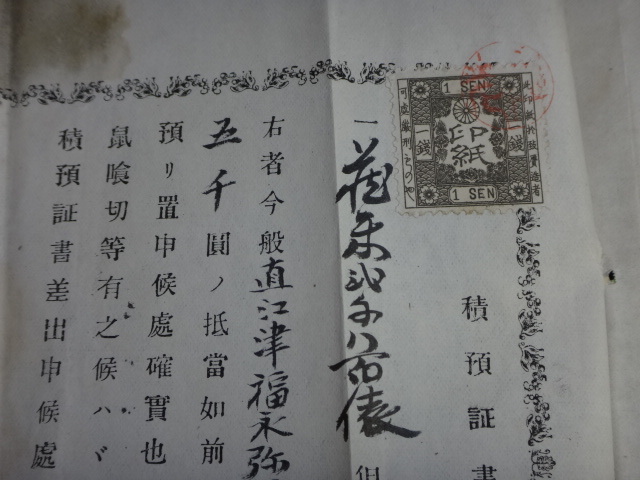 積預証書
一蔵米弐千八百俵 但
右者今般直江津福永弥
五千圓ノ抵當如前
預リ置申候處確實也
鼠喰切等有之候ハヾ
積預証書差出申候處
1 SEN
印紙
一錢
一錢
1 SEN